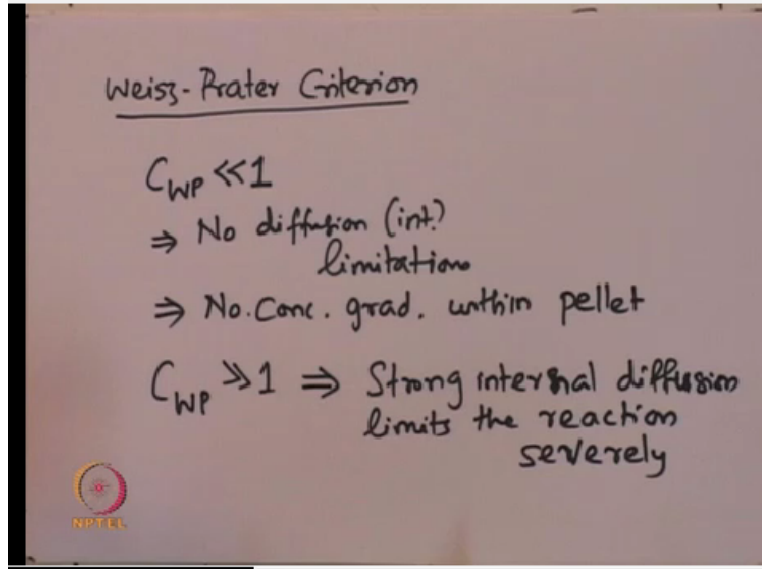 Weisz-Prater Criterion
C_WP ≪ 1
⇒ No diffusion (int.)
limitations
⇒ No. Conc. grad. within pellet
C_WP ≫ 1 ⇒ Strong internal diffusion
limits the reaction
severely
NPTEL